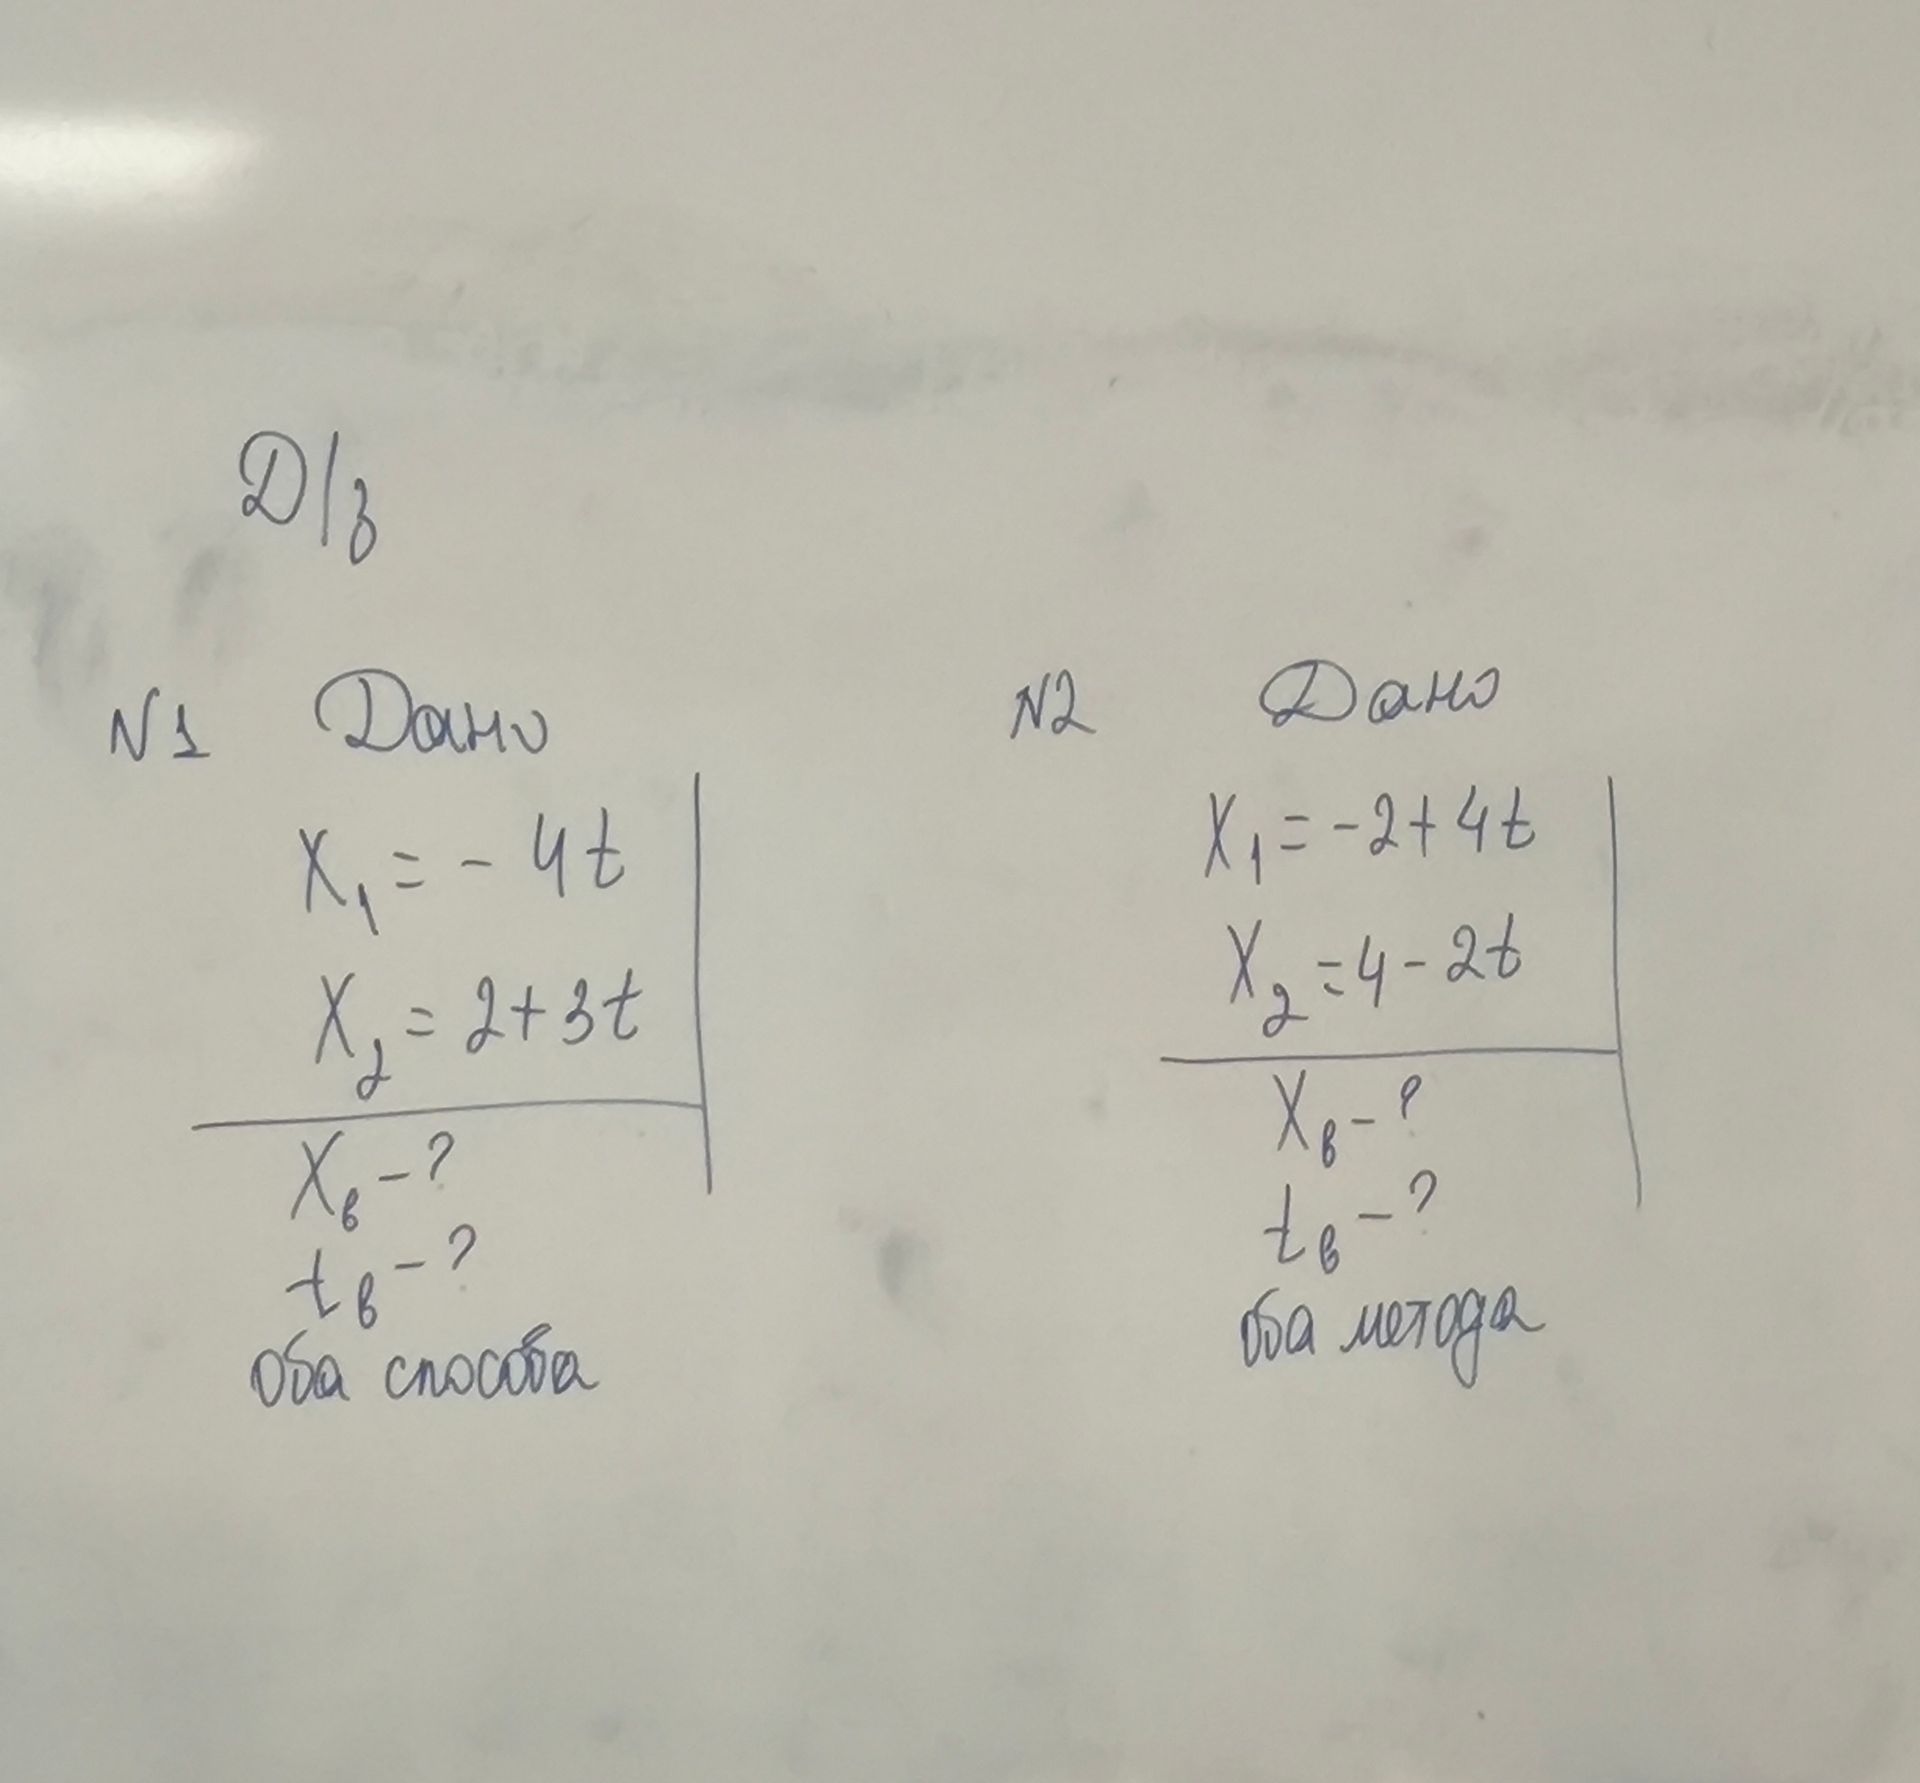 Д/з
N1 Дано
X₁ = - 4t
X₂ = 2+3t
Xв - ?
tв - ?
оба способа
N2 Дано
X₁ = -2+4t
X₂ = 4-2t
Xв - ?
tв - ?
оба метода